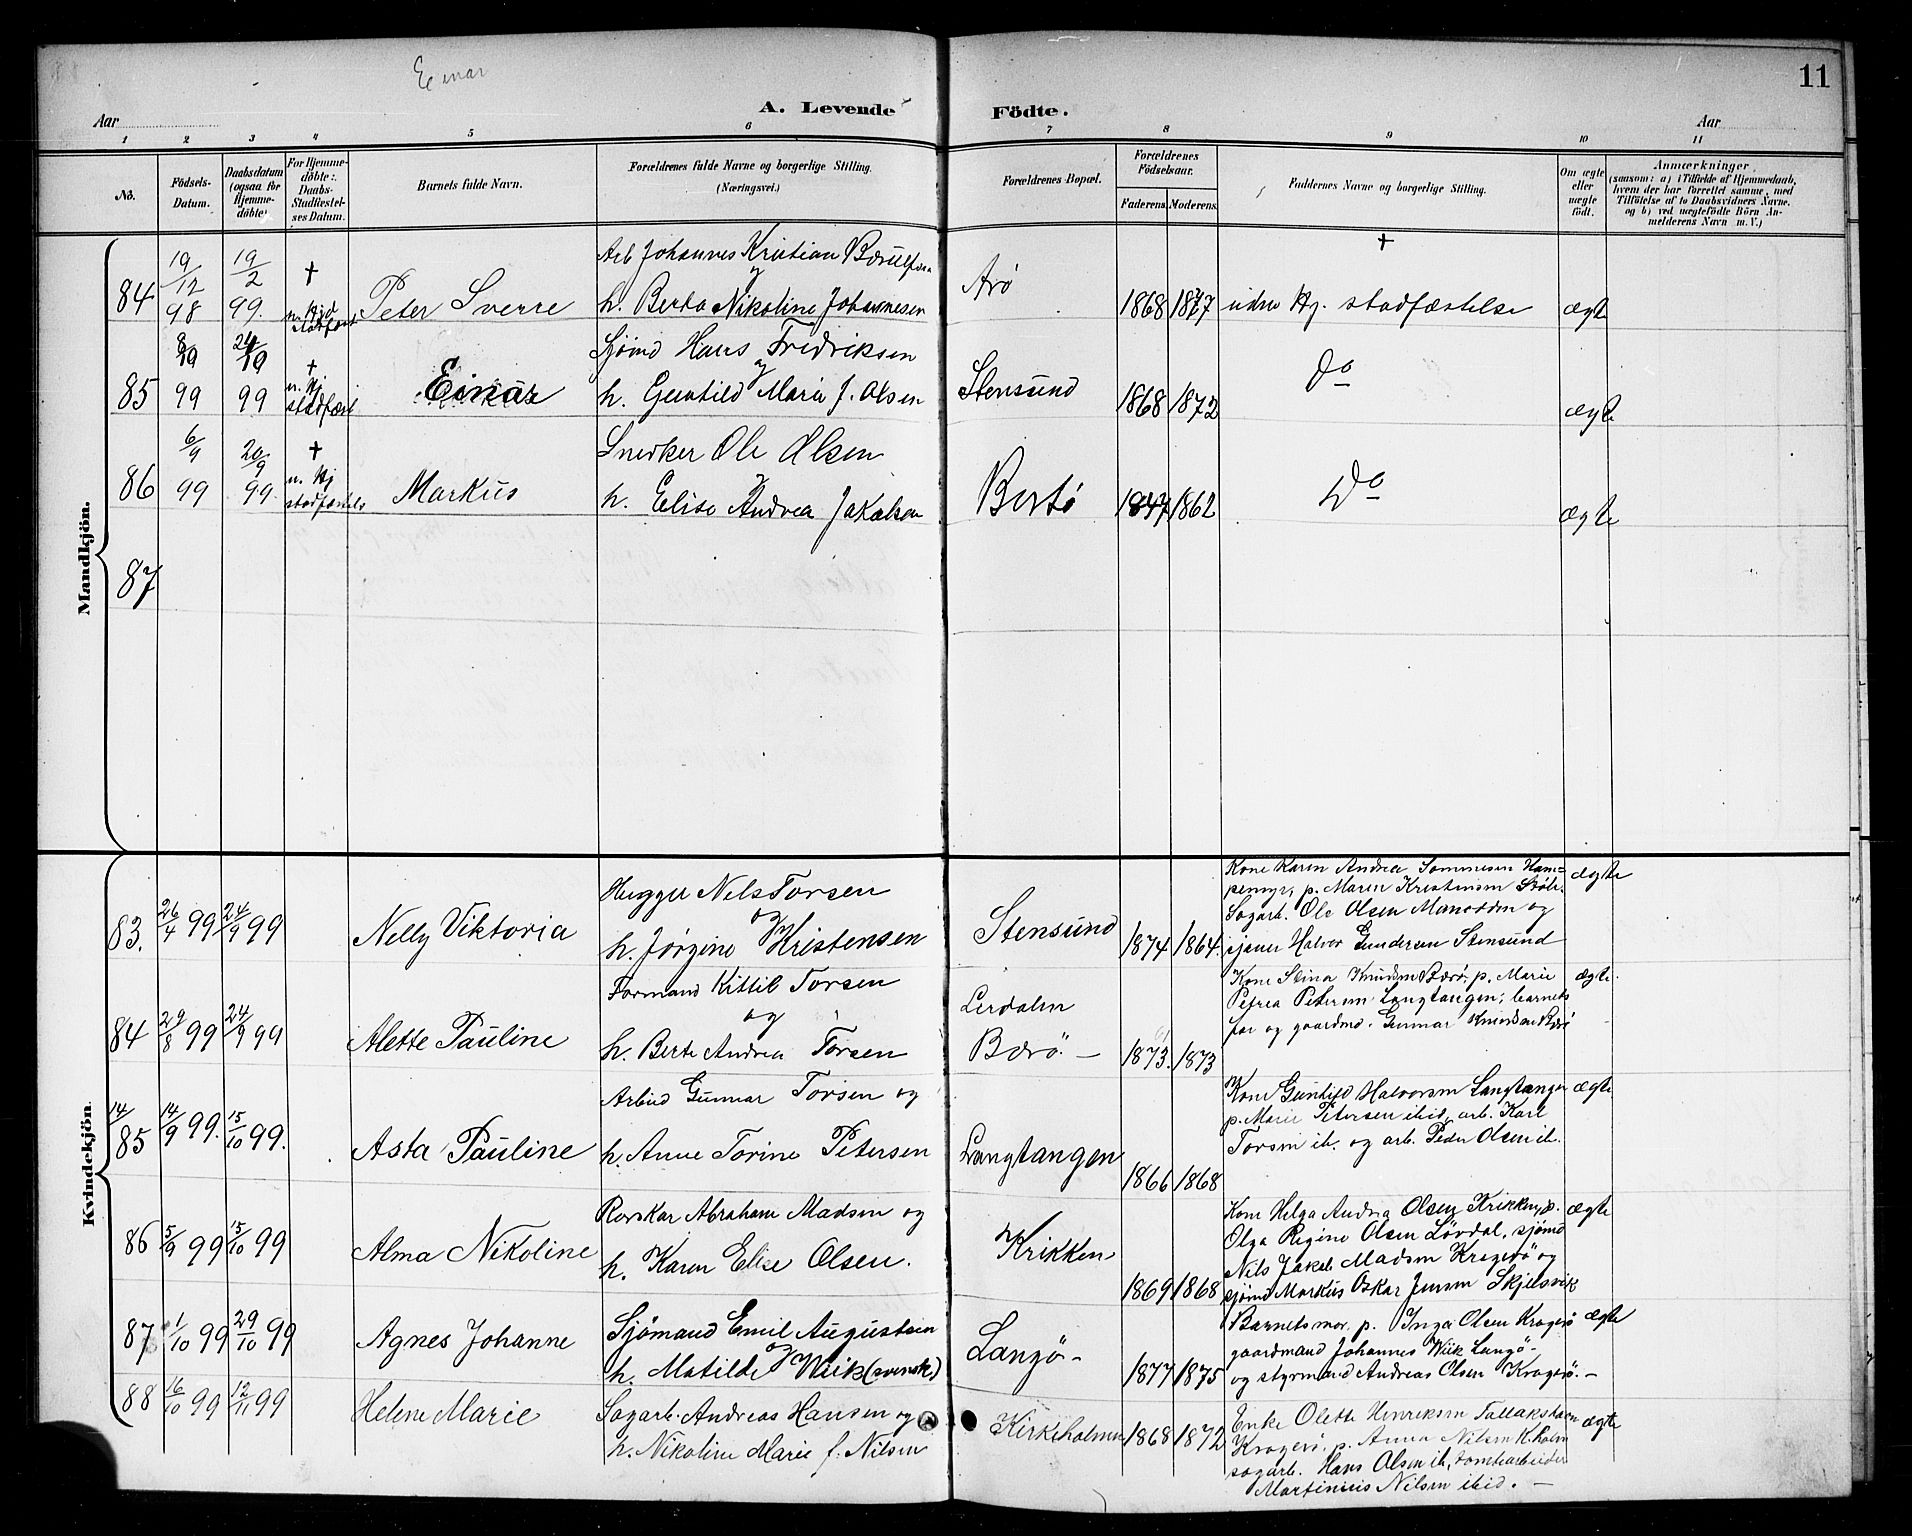 Einar
11
A. Levende Födte.
Aar
Aar
1 2 3 4 5 6 7 8 9 10 11
No.
Födsels-Datum.
Daabsdatum (ogsaa for Hjemme-döbte)
For Hjemme-döbte: Daabs-Stadfæstel-ses Datum.
Barnets fulde Navn.
Forældrenes fulde Navne og borgerlige Stilling. (Næringsvei.)
Forældrenes Bopæl.
Forældrenes Födselsaar.
Faderens. Moderens.
Faddernes Navne og borgerlige Stilling.
Om ægte eller uægte födt.
Anmærkninger,
(saasom: a) i Tilfælde af Hjemmedaab,
hvem der har forrettet samme, med
Tilföielse af to Daabsvidners Navne.
og b) ved uægtefödte Börn An-
melderens Navn m. V.)
Mandkjön.
84 19/12 98 19/2 99. † Peter Sverre
Arb Johannes Kristian
h. Berta Nikoline Johannesen
Arø 1868 1877 † uden Hj. stadfæstelse ægte
85 8/9 99 24/9 99 † u. Hj stadfæst Einar
Sjømd Hans Fredriksen og
h. Guntild Maria J. Olsen
Stensund 1868 1872 Do ægte
86 6/9 99 20/9 99 † u. Hj stadfæstels Markus
Snedker Ole Olsen
h. Elise Andrea Jakobsen
Bertø 1847 1862 Do ægte
87
Kvindekjön.
83. 26/4 99 24/9 99 Nelly Viktoria
Hugger Nels Torsen og
h. Jørgine Kristensen
Stensund 1874 1864.
Kone Karen Andrea Sommesen Ham-
pemyr, p. Maren Kristensen
Sagarb. Ole Olsen og
Halvor Gundersen Stensund
ægte
84 29/8 99 24/9 99 Alette Pauline
Formand Kittil Torsen
og
h. Berte Andrea Torsen
Lerdalen
Bærø. — 1873. 1873
Kone Stina Knudsen Bærø, p. Marie
Petrea Petersen Langtangen, barnets
far og gaardmd. Gunnar Knudsen Bærø
ægte
14/
85 14/9 99. 15/10 99. Asta Pauline
Arbeid Gunnar Torsen og
h. Anne Torine Petersen
Langtangen 1866 1868
Kone Guntild Halvorsen Langtangen
p. Marie Petersen ibid, arb. Karl
Torsen ib. og arb. Peder Olsen ib.
ægte
86 5/9 99 15/10 99 Alma Nikoline
Abraham Madsen og
h. Karen Elise Olsen.
Krikken 1869 1868
Kone Helga Andrea Olsen Krikken, p.
Olga Regine Olsen Lövdal, sjømd
Nils Jakob Madsen Kragerø og
sjømd Markus Oskar Jensen Skjelsvik
ægte
87 1/10 99 29/10 99 Agnes Johanne
Sjømand Emil Augustsen og
h. Matilde Wiik (svensk)
Langø- 1877 1875
Barnets mor, p. Inga Olsen Kragerø
gaardmand Johannes Wiik Langø-
og styrmand Andreas Olsen Kragerø. —
ægte
88 16/10 99 12/11 99 Helene Marie
Sagarb. Andreas Hansen og
h. Nikoline Marie f. Nilsen
Kirkeholmen 1868 1872
Enke Olette Henriksen
Kragerø, p. Anna Nilsen K.holm
sagarb. Hans Olsen ib, tomtearbeider
Martinius Nilsen ibid. —
ægte